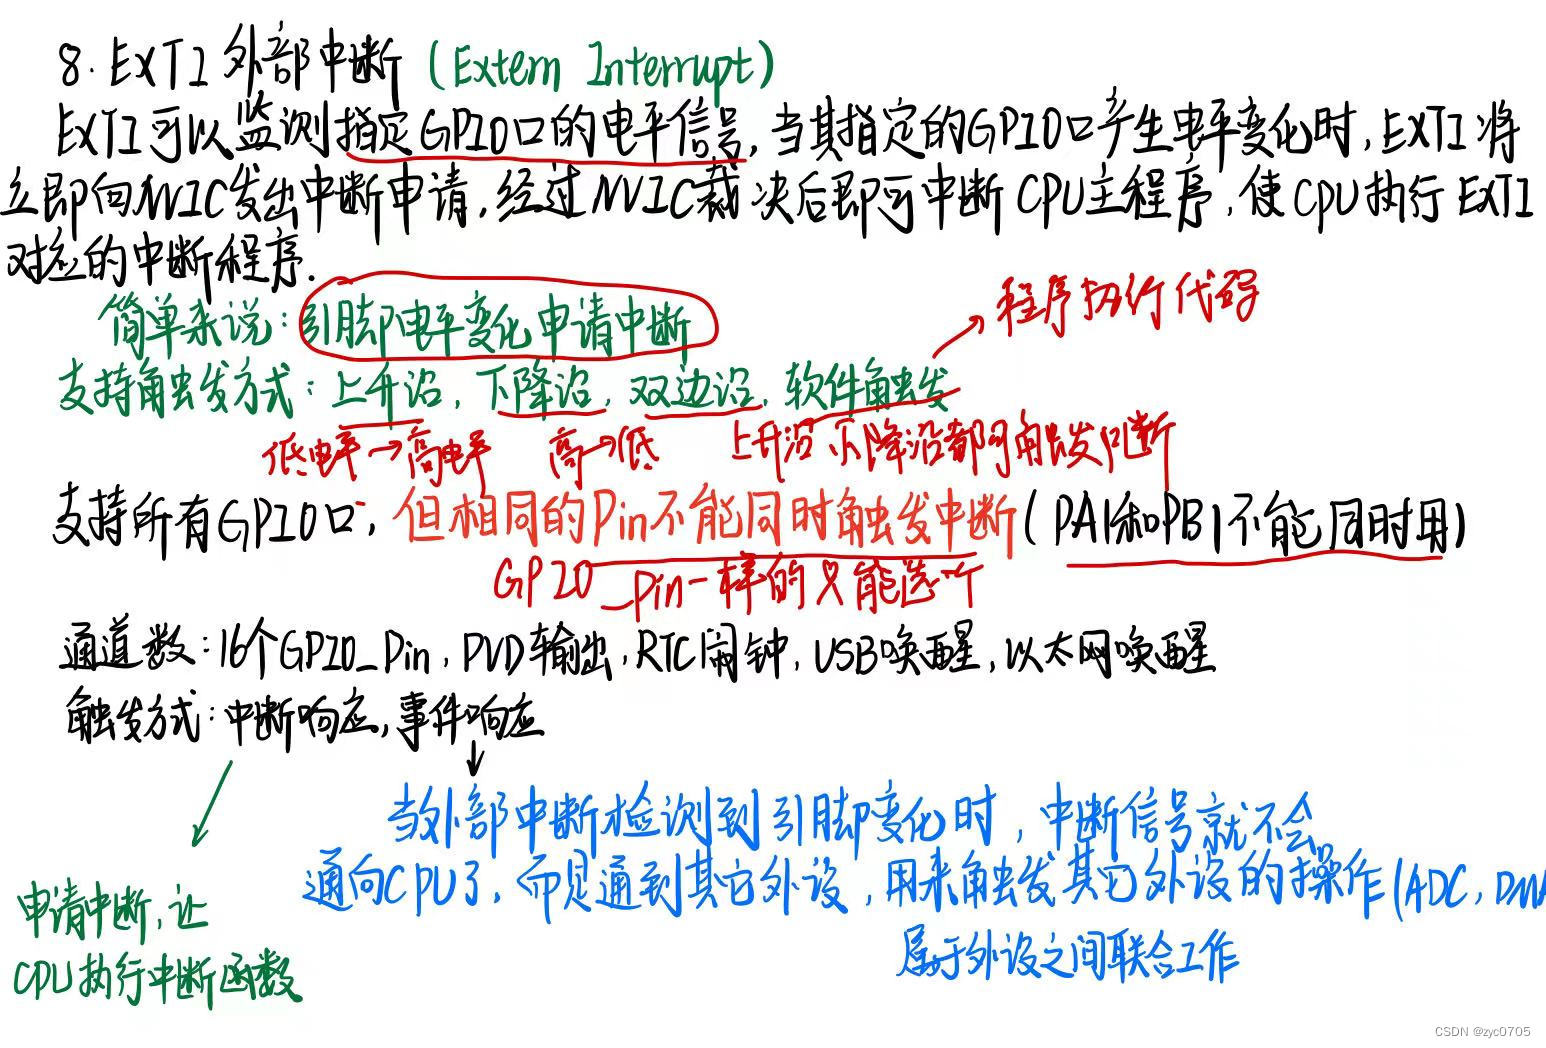 8. EXTI 外部中断 (Extern Interrupt)
EXTI可以监测指定GPIO口的电平信号,当其指定的GPIO口产生电平变化时,EXTI将
立即向NVIC发出中断申请,经过NVIC裁决后即可中断CPU主程序,使CPU执行EXTI
对应的中断程序.
程序执行代码
简单来说:引脚电平变化申请中断
支持触发方式:上升沿,下降沿,双边沿,软件触发
低电平→高电平 高→低 上升沿下降沿都可触发中断
支持所有GPIO口,但相同的Pin不能同时触发中断(PA1和PB1不能同时用)
GPIO_Pin一样的只能选一个
通道数:16个GPIO_Pin,PVD输出,RTC闹钟,USB唤醒,以太网唤醒
触发方式:中断响应,事件响应
当外部中断检测到引脚变化时,中断信号就不会
通向CPU了,而是通到其它外设,用来触发其它外设的操作(ADC,DMA
申请中断,让
属于外设之间联合工作
CPU执行中断函数
CSDN @zyc0705